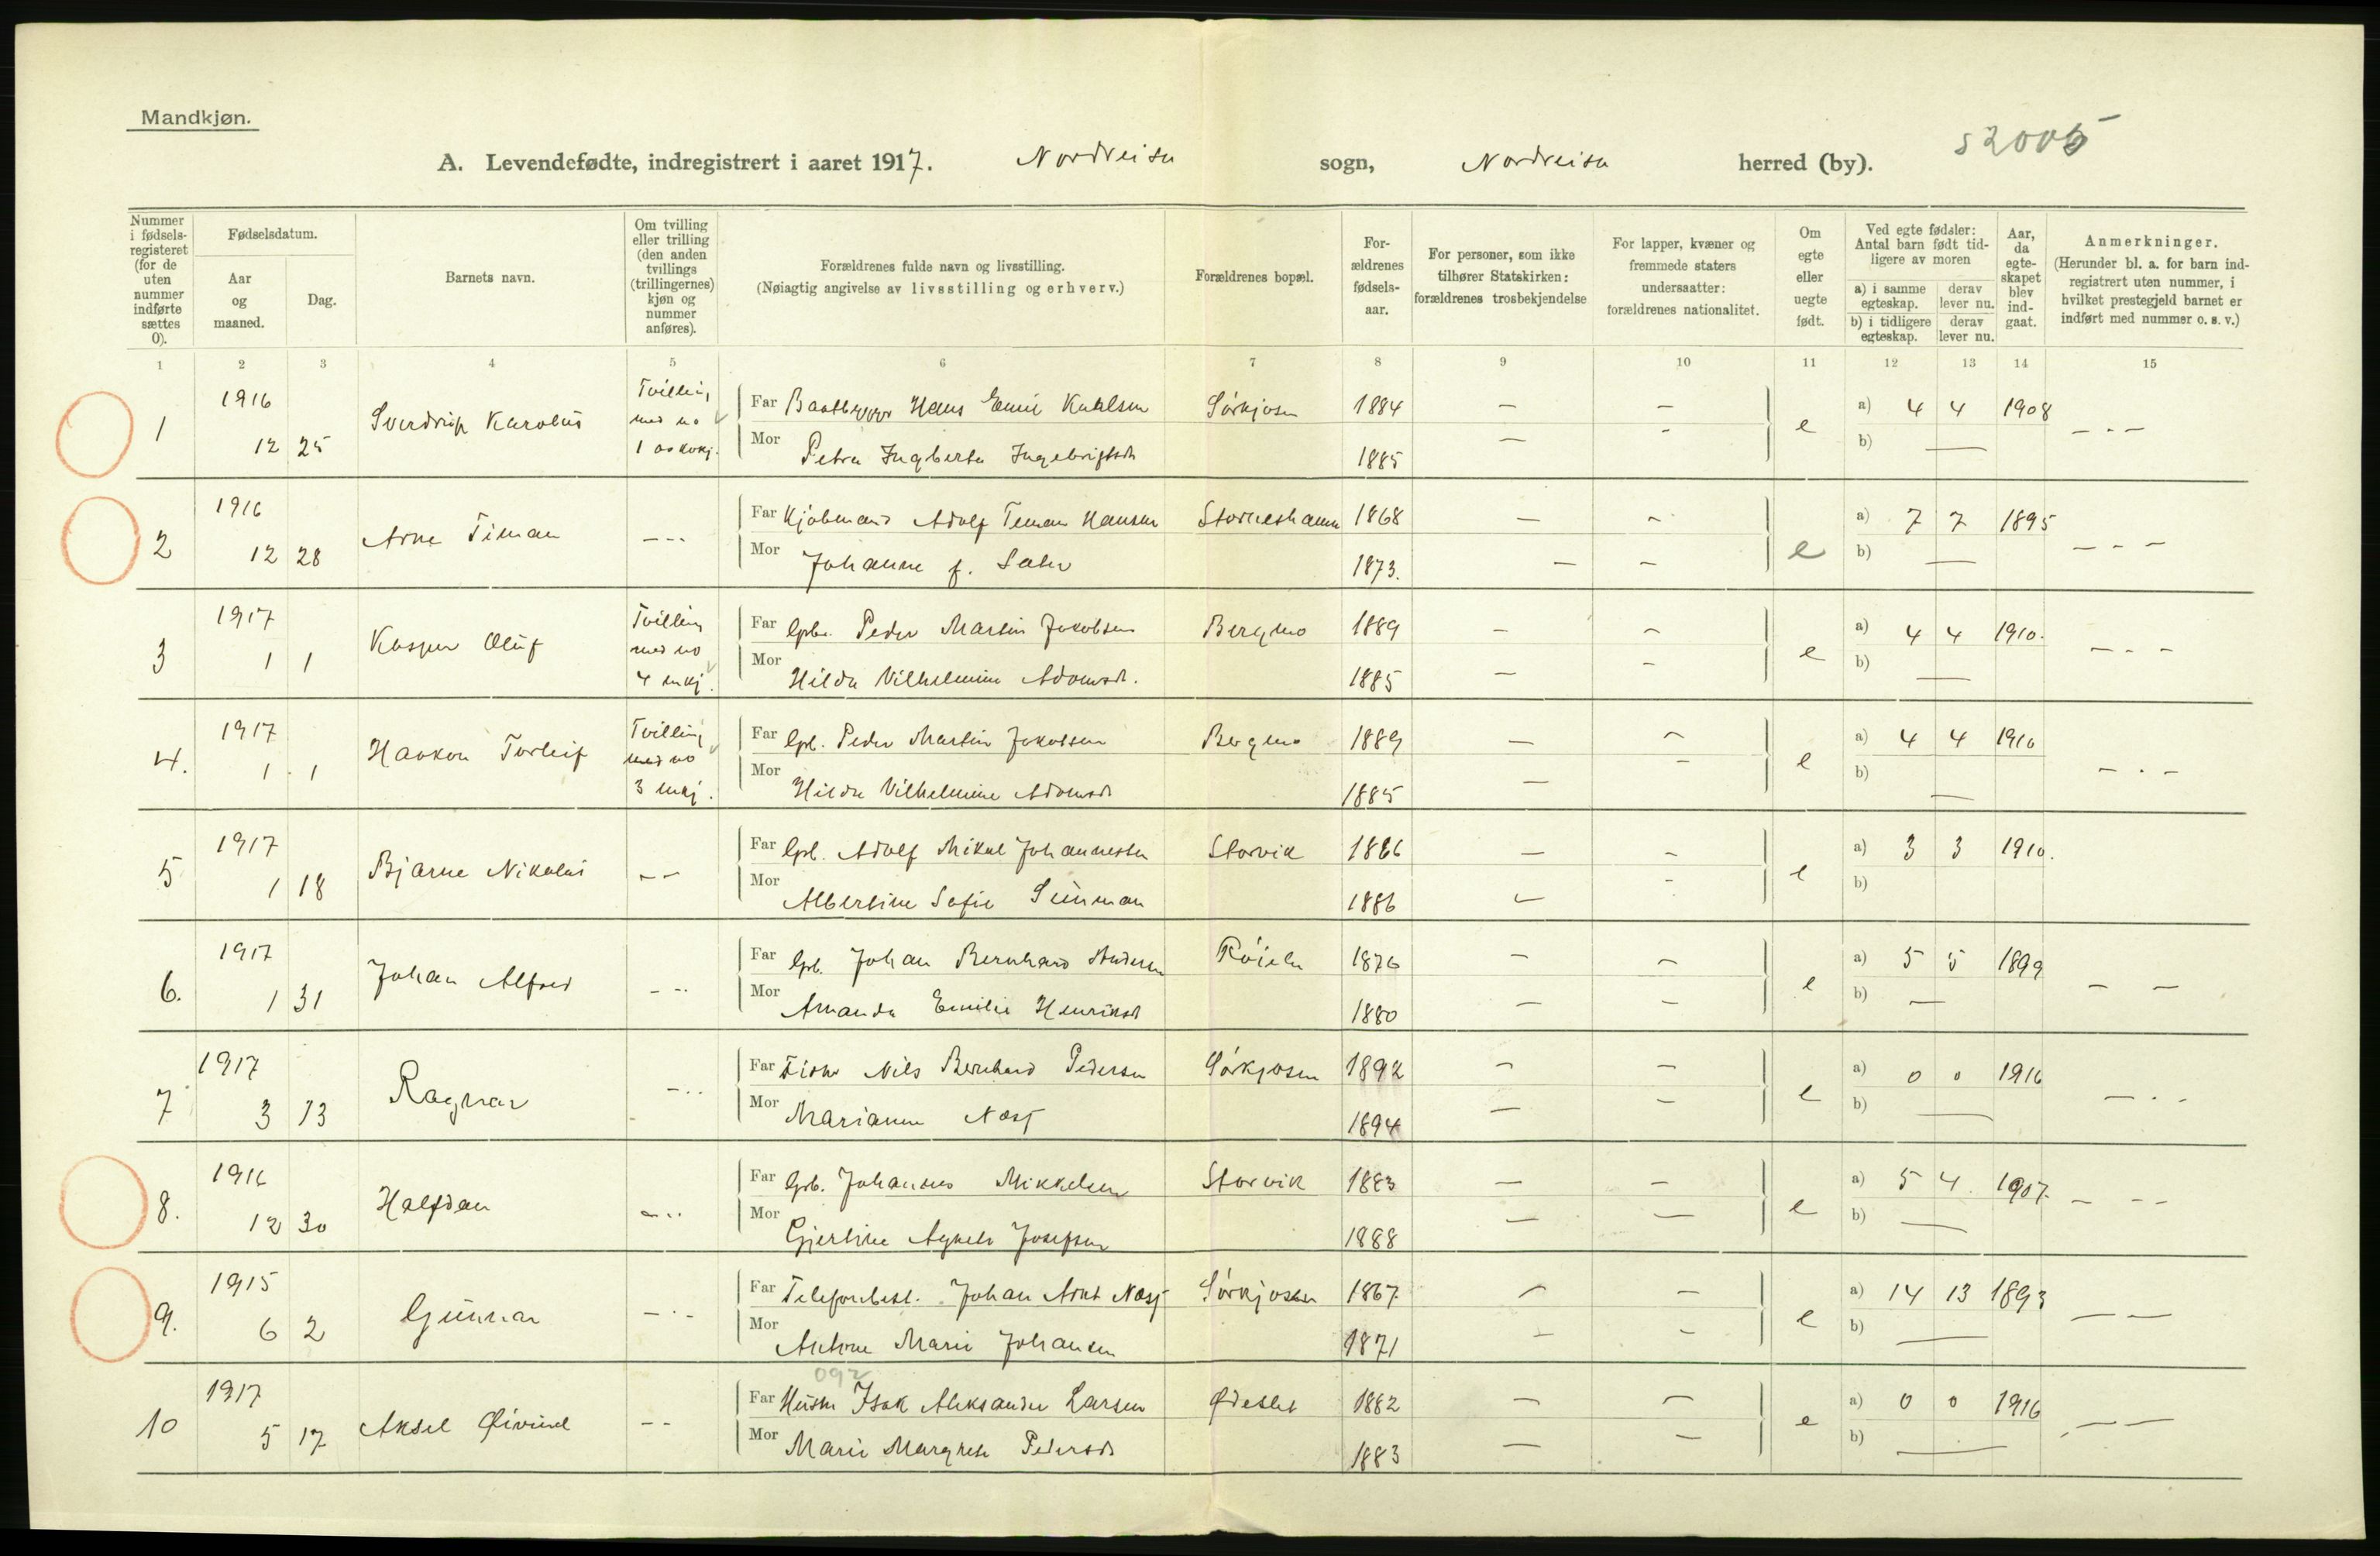 Mandkjøn.
A. Levendefødte, indregistrert i aaret 1917. Nordreisa sogn, Nordreisa herred (by). 52005
Nummer i fødsels-registeret (for de uten nummer indførte sættes 0).
Fødselsdatum.
Aar og maaned.
Dag.
Barnets navn.
Om tvilling eller trilling (den anden tvillings (trillingernes) kjøn og nummer anføres).
Forældrenes fulde navn og livsstilling.
(Nøiagtig angivelse av livsstilling og erhverv.)
Forældrenes bopæl.
For-ældrenes fødsels-aar.
For personer, som ikke tilhører Statskirken: forældrenes trosbekjendelse
For lapper, kvæner og fremmede staters undersaatter: forældrenes nationalitet.
Om egte eller uegte født.
Ved egte fødsler: Antal barn født tid-ligere av moren
a) i samme egteskap. derav lever nu.
b) i tidligere egteskap. derav lever nu.
Aar, da egte-skapet blev ind-gaat.
Anmerkninger.
(Herunder bl. a. for barn ind-registrert uten nummer, i hvilket prestegjeld barnet er indført med nummer o. s. v.)
1 2 3 4 5 6 7 8 9 10 11 12 13 14 15
1 1916 12 25 Sverdrup Karolus Tvilling med no 1 Far Hans Emil Sørkjosen 1884 — — e a) 4 4 1908
Mor Petra Ingberta 1885 — — b) —
2 1916 12 28 Arne Timan --- Far Kjøbmand Adolf Timan Hansen Storneshamn 1868 — — e a) 7 7 1895 - - -
Mor Johanne f. 1873. — — b) —
3 1917 1 1 Kasper Oluf Tvilling med no 4 mkj. Far Gbr. Peder Martin Jakobsen Bergmo 1889 — — e a) 4 4 1910. - - -
Mor Hilda Vilhelmine Adamsd. 1885 — — b) —
4. 1917 1 1 Haakon Torleif Tvilling med no 3 mkj. Far Gbr. Peder Martin Jakobsen Bergmo 1889 — — e a) 4 4 1910 - - -
Mor Hilda Vilhelmine Adamsd 1885 — — b) —
5 1917 1 18 Bjarne Nikolai -- Far Gbr. Adolf Mikal Johannesen Storvik 1886 — — e a) 3 3 1910.
Mor Albertine Sofie 1886 — — b)
6. 1917 1 31 Johan Alfred --- Far Gbr. Johan Bernhard Andersen 1876 — — e a) 5 5 1899 — —
Mor Amanda Emilie Henriksd 1880 — — b) —
7 1917 3 13 Ragnar --- Far Fisker Nils Bernhard Pedersen Sørkjosen 1892 — — e a) 0 0 1916 - - -
Mor Marianne Næsj 1894 — — b) —
8. 1916 12 30 Halfdan --- Far Gbr. Johannes Mikkelsen Storvik 1883 — — e a) 5 4 1907. - - -
Mor Gjertine Josefsen 1888 — — b) —
9. 1915 6 2 Gunnar --- Far Telefonbest. Johan Arnt Næsj Sørkjosen 1867 — — e a) 14 13 1893 — —
Mor Antone Marie Johansen 1871 — — b) —
092
10 1917 5 17 Aksel Øivind -- Far Isak Aleksander Larsen 1882 — — e a) 0 0 1916 — —
Mor Marie Margrete Pedersd 1883 — — b) —